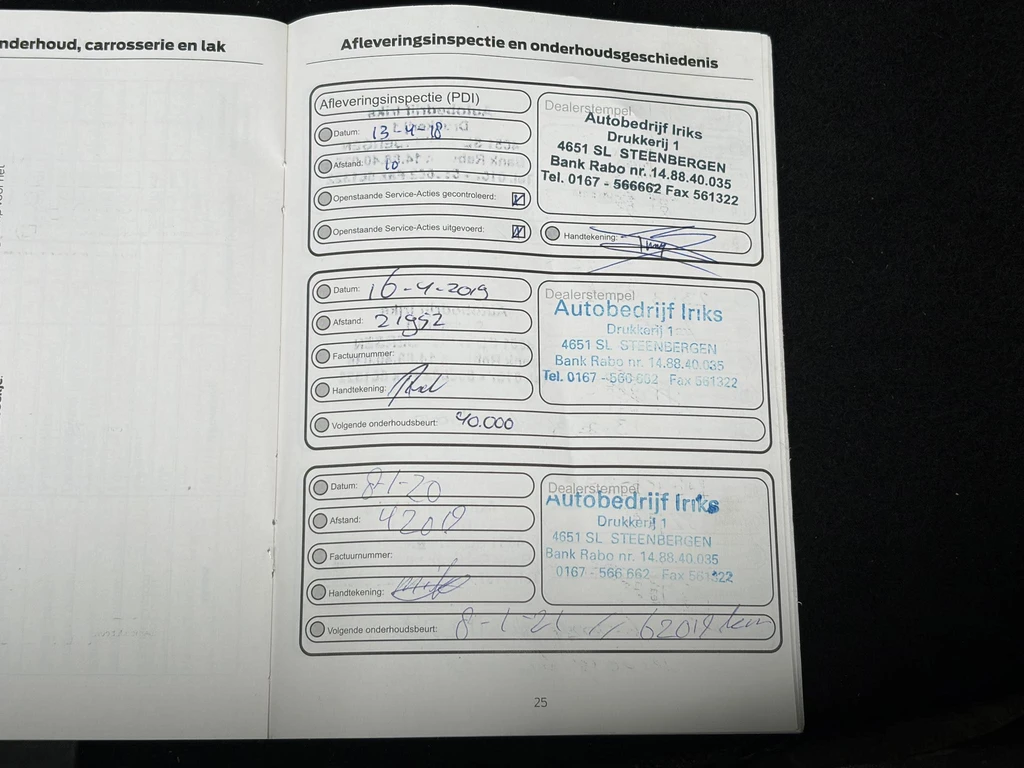 nderhoud, carrosserie en lak
Afleveringsinspectie en onderhoudsgeschiedenis
Afleveringsinspectie (PDI)
Datum: 13-4-18
Afstand: 10
Openstaande Service-Acties gecontroleerd:
Openstaande Service-Acties uitgevoerd:
Dealerstempel
Autobedrijf Iriks
Drukkerij 1
4651 SL STEENBERGEN
Bank Rabo nr. 14.88.40.035
Tel. 0167 - 566662 Fax 561322
Handtekening:
Datum: 16-4-2019
Afstand: 21992
Factuurnummer:
Handtekening:
Volgende onderhoudsbeurt: 40.000
Dealerstempel
Autobedrijf Iriks
Drukkerij 1
4651 SL STEENBERGEN
Bank Rabo nr. 14.88.40.035
Tel. 0167 - 566 662 Fax 561322
Datum: 8-1-20
Afstand: 42019
Factuurnummer:
Handtekening:
Volgende onderhoudsbeurt: 8-1-21 // 62019 km
Dealerstempel
Autobedrijf Iriks
Drukkerij 1
4651 SL STEENBERGEN
Bank Rabo nr. 14.88.40.035
0167 - 566 662 Fax 561322
25